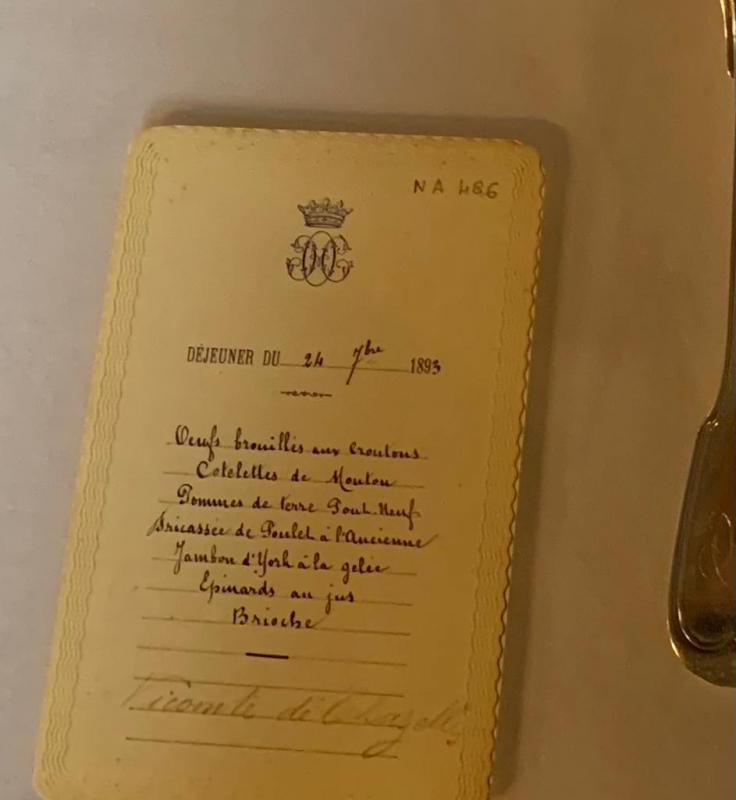 NA 486
DÉJEUNER DU 24 7bre 1893
Oeufs brouillés aux Croutons
Cotelettes de Mouton
Pommes de terre Pont-Neuf
Fricassée de Poulet à l'Ancienne
Jambon d'York à la gelée
Epinards au jus
Brioche
Vicomte de